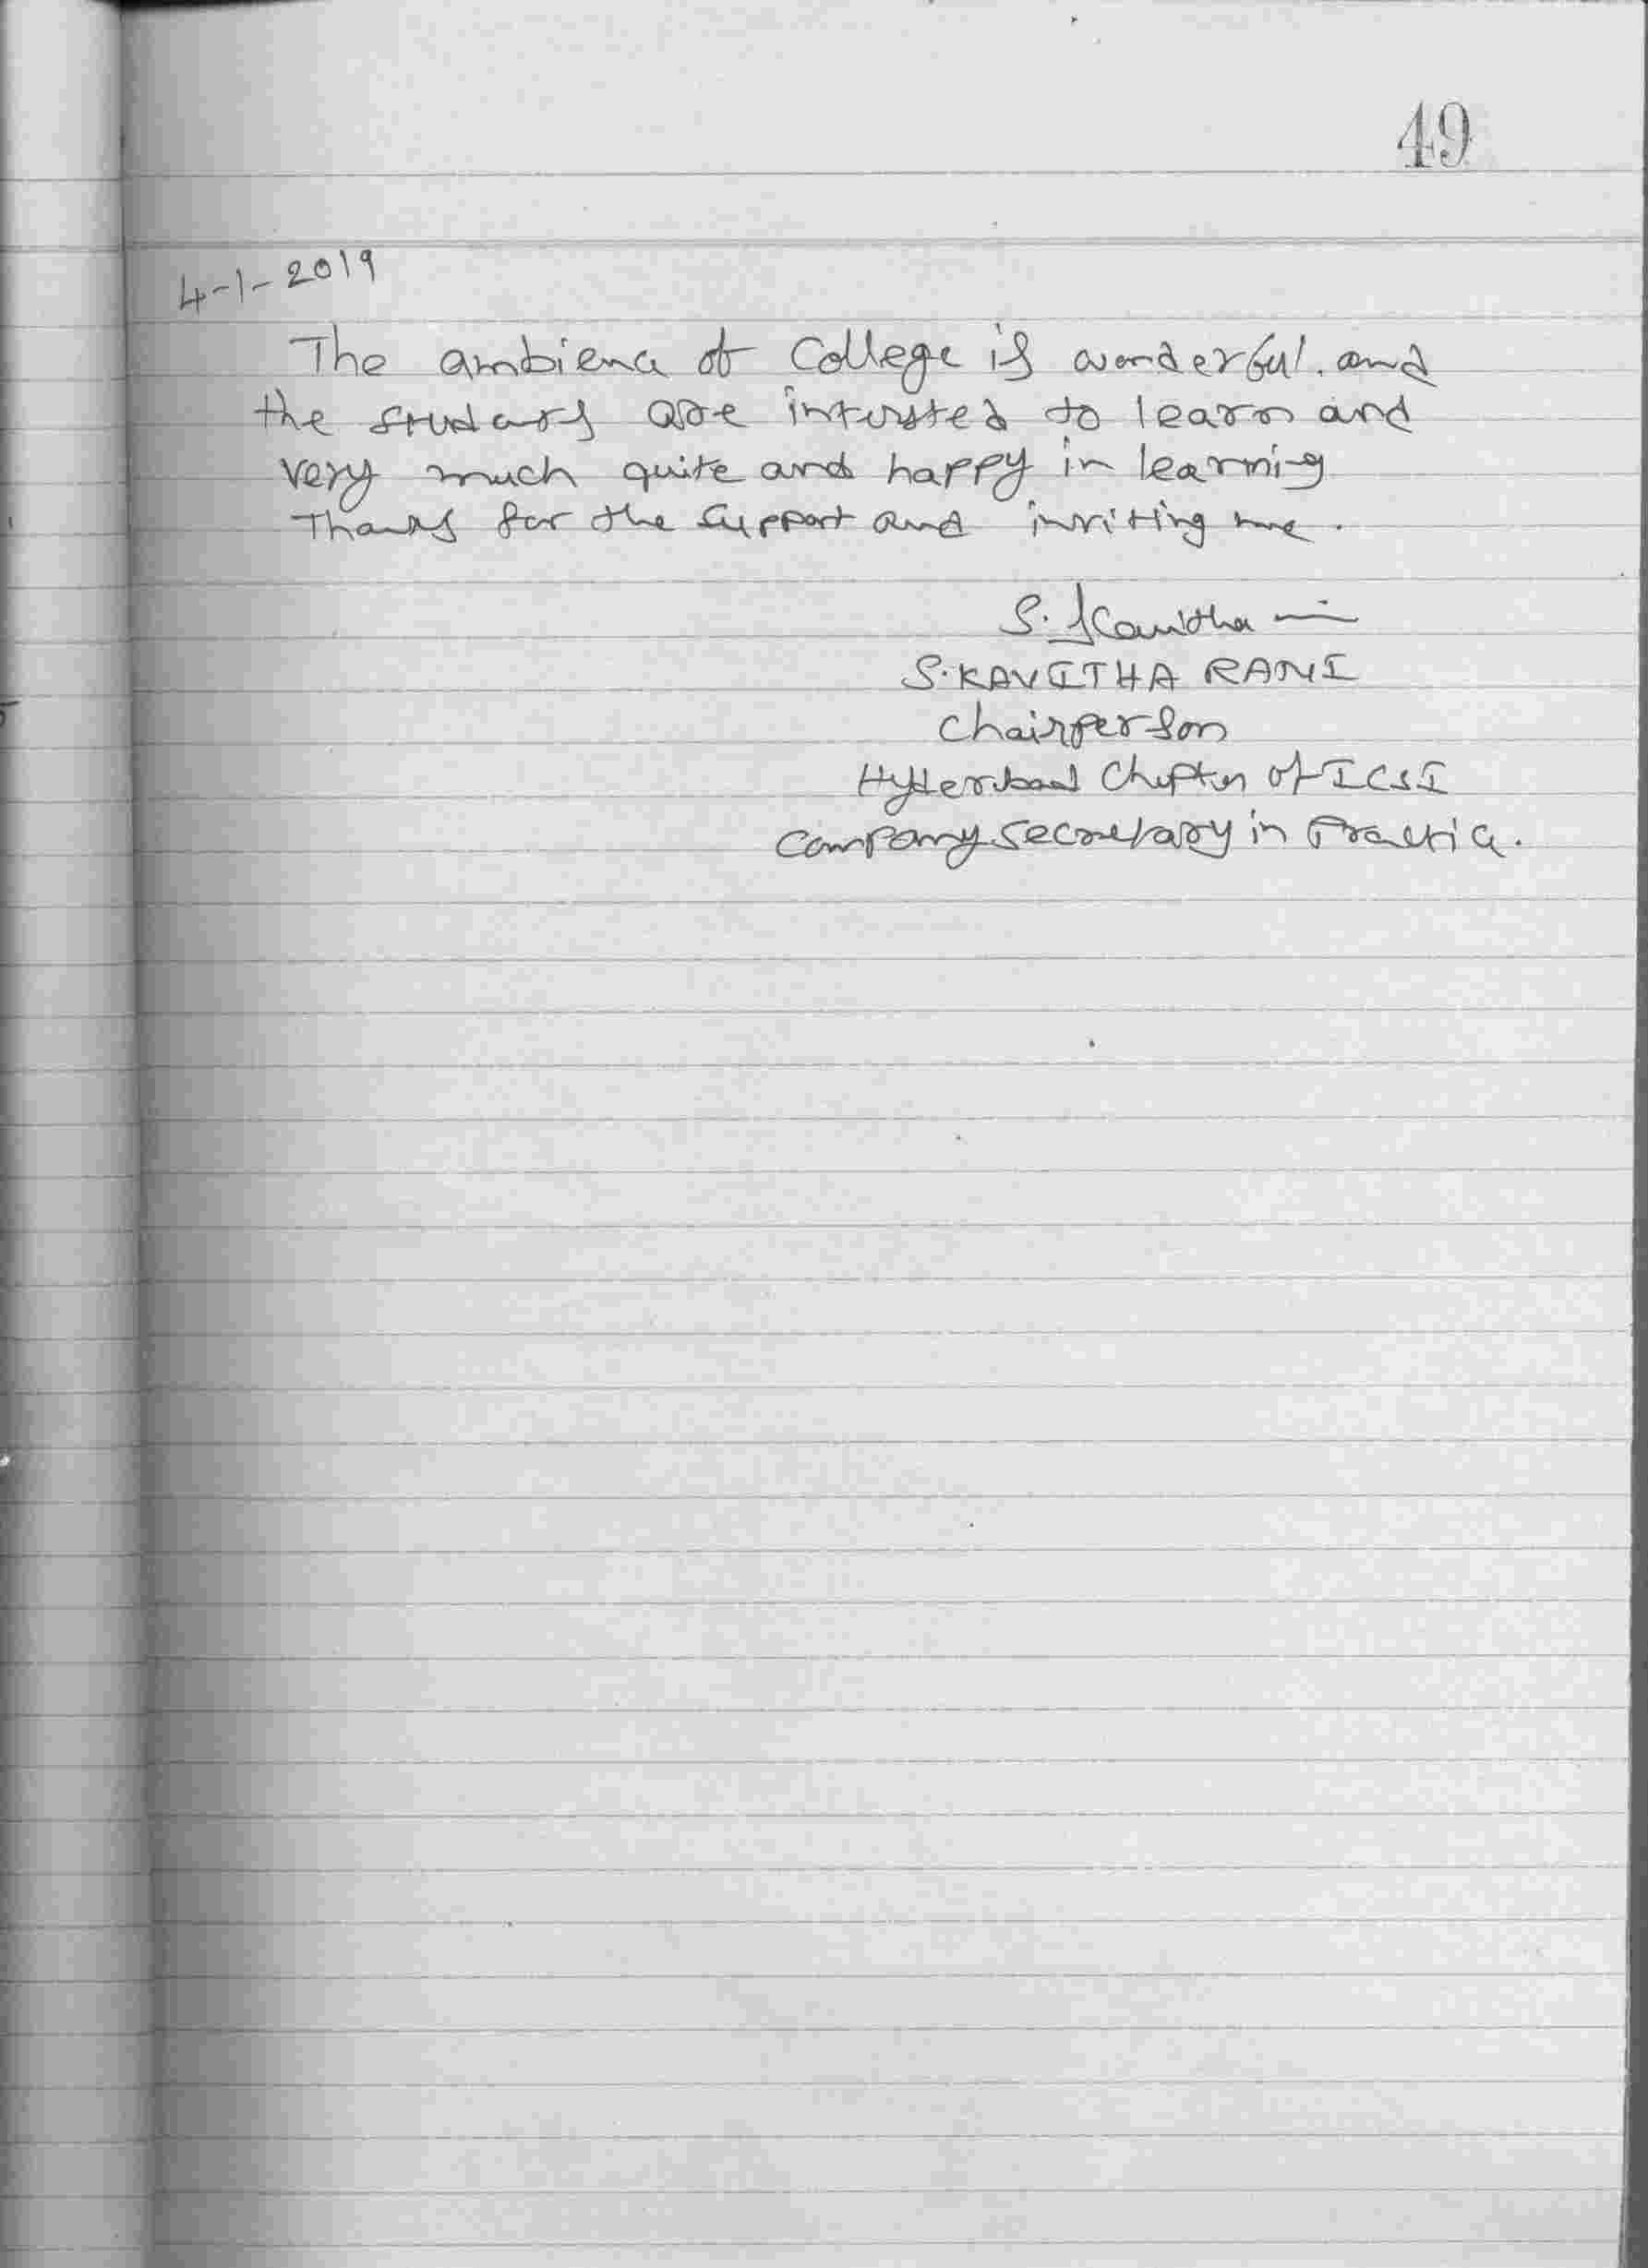 49
4-1-2019
The ambience of College is wonderful. and
the students are intersted to learn and
very much quite and happy in learning
Thanks for the support and inviting me.
S. Kavitha
S. KAVITHA RANI
Chairperson
Hyderabad Chapter of ICSI
Company Secretary in Practice.